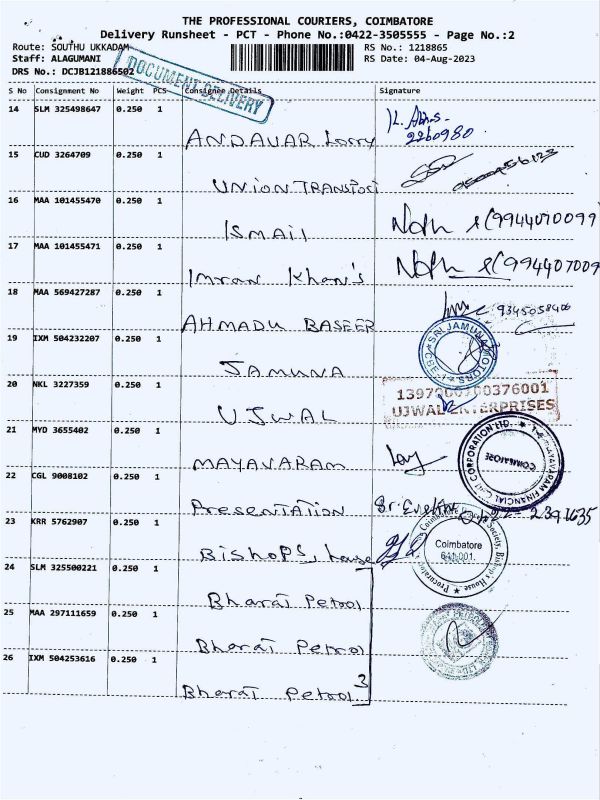 THE PROFESSIONAL COURIERS, COIMBATORE
Delivery Runsheet - PCT - Phone No.:0422-3505555 - Page No.:2
Route: SOUTHU UKKADAM RS No.: 1218865
Staff: ALAGUMANI RS Date: 04-Aug-2023
DRS No.: DCJB121886502
DOCUMENT DELIVERY
S No Consignment No Weight PCS Consignee Details Signature
14 SLM 325498647 0.250 1
ANDAVAR Lorry 2260980
15 CUD 3264709 0.250 1
UNION TRANSPORT
16 MAA 101455470 0.250 1
ISMAIL (9944070099)
17 MAA 101455471 0.250 1
Imran Khan's (994407009
18 MAA 569427287 0.250 1
AHMADU BASEER 9345058406
19 IXM 504232207 0.250 1
JAMUNA SRI JAMUNA MOTORS
20 NKL 3227359 0.250 1
UJWAL UJWAL ENTERPRISES
21 MYD 3655402 0.250 1
MAYAVARAM COIMBATORE
22 CGL 9008102 0.250 1
Presentation 2391635
23 KRR 5762907 0.250 1
Bishops, house Coimbatore
641 001.
24 SLM 325500221 0.250 1
Bharat Petrol
25 MAA 297111659 0.250 1
Bharat Petrol
26 IXM 504253616 0.250 1
Bharat Petrol 3